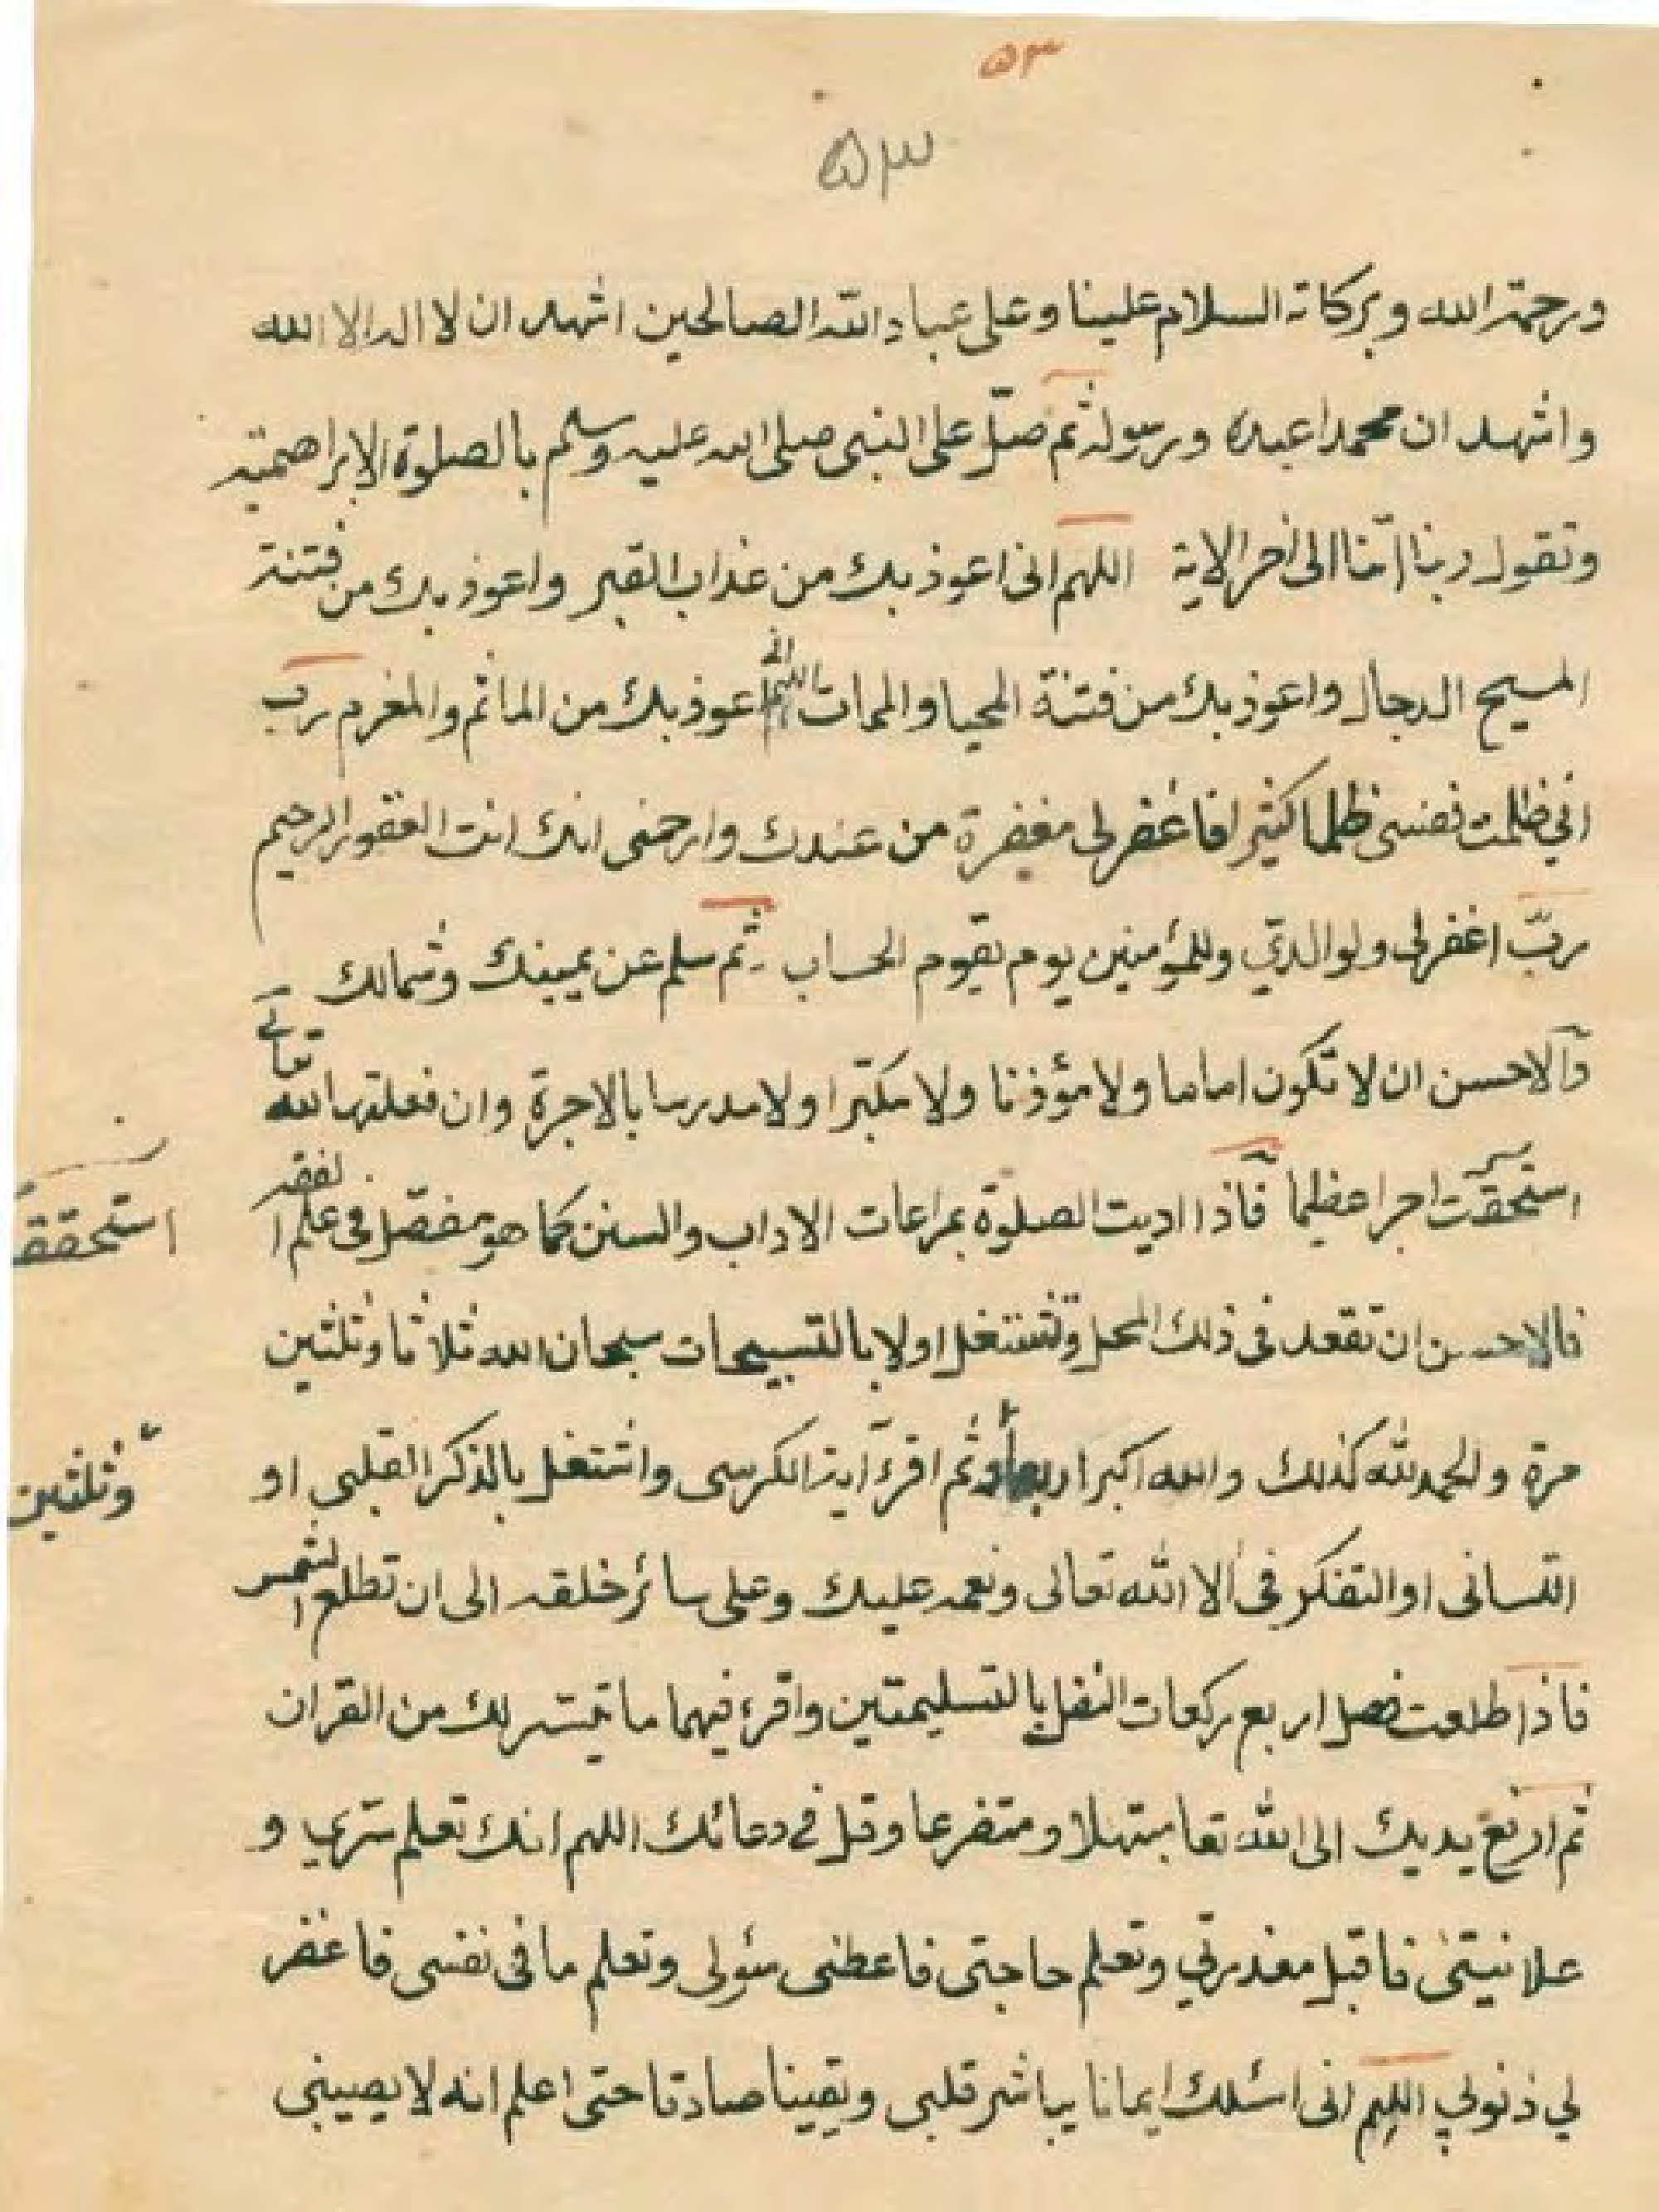 ۵۳
۵۳
ورحمة الله وبركاته السلام علينا وعلى عباد الله الصالحين اشهد ان لا اله الا الله
واشهد ان محمدا عبده ورسوله ثم صلّ على النبى صلى الله عليه وسلم بالصلوة الابراهمية
وتقول ربنا اتنا الى اخر الاية اللهم انى اعوذ بك من عذاب القبر واعوذ بك من فتنة
المسيح الدجال واعوذ بك من فتنة المحيا والممات اللهم انى اعوذ بك من الماثم والمغرم رب
انى ظلمت نفسى ظلما كثيرا فاغفرلى مغفرة من عندك وارحمنى انك انت الغفور الرحيم
ربّ اغفرلى ولوالديّ وللمؤمنين يوم يقوم الحساب ثم سلم عن يمينك وشمالك
والاحسن ان لا تكون اماما ولا مؤذنا ولا مكبّرا ولا مدرسا بالاجرة وان فعلتها لله تعالى
استحققت اجرا عظيما فاذا اديت الصلوة بمراعات الاداب والسنن كما هو مفصّل فى علم الفقه
استحققت
فالاحسن ان تقعد فى ذلك المحل وتشتغل اولا بالتسبيحات سبحان الله ثلاثا وثلثين
مرة والحمد لله كذلك والله اكبر اربعا ثم اقرء آية الكرسى واشتغل بالذكر القلبى او
وثلثين
اللسانى او التفكر فى ألاا الله تعالى ونعمه عليك وعلى سائر خلقه الى ان تطلع الشمس
فاذا طلعت فصل اربع ركعات النفل بالتسليمتين واقرء فيهما ما تيسر لك من القران
ثم ارفع يديك الى الله تعا مبتهلا ومتضرعا وقل فى دعائك اللهم انك تعلم سرّي و
علانيتى فاقبل معذرتي وتعلم حاجتى فاعطنى سؤلى وتعلم ما فى نفسى فاغفر
لي ذنوبي اللهم انى اسئلك ايمانا يباشر قلبى ويقينا صادقا حتى اعلم انه لا يصيبنى